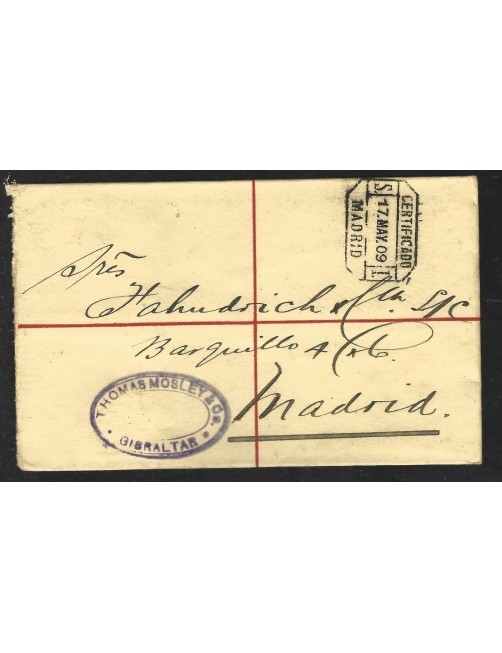 CERTIFICADO
S 17.MAY.09 T.
MADRID
Srēs
Fahndrich & Cía S/C
Barquillo 4
Madrid.
THOMAS MOSLEY & Co.
GIBRALTAR